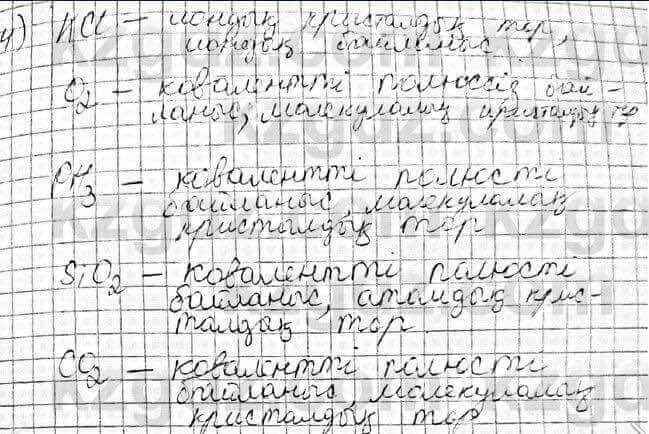 4) KCl – иондық кристалдық тор,
иондық байланыс
O2 – ковалентті полюссіз бай-
ланыс, молекулалық кристалдық тор
PH3 – ковалентті полюсті
байланыс, молекулалық
кристалдық тор
SiO2 – ковалентті полюсті
байланыс, атомдық крис-
талдық тор
CO2 – ковалентті полюсті
байланыс, молекулалық
кристалдық тор